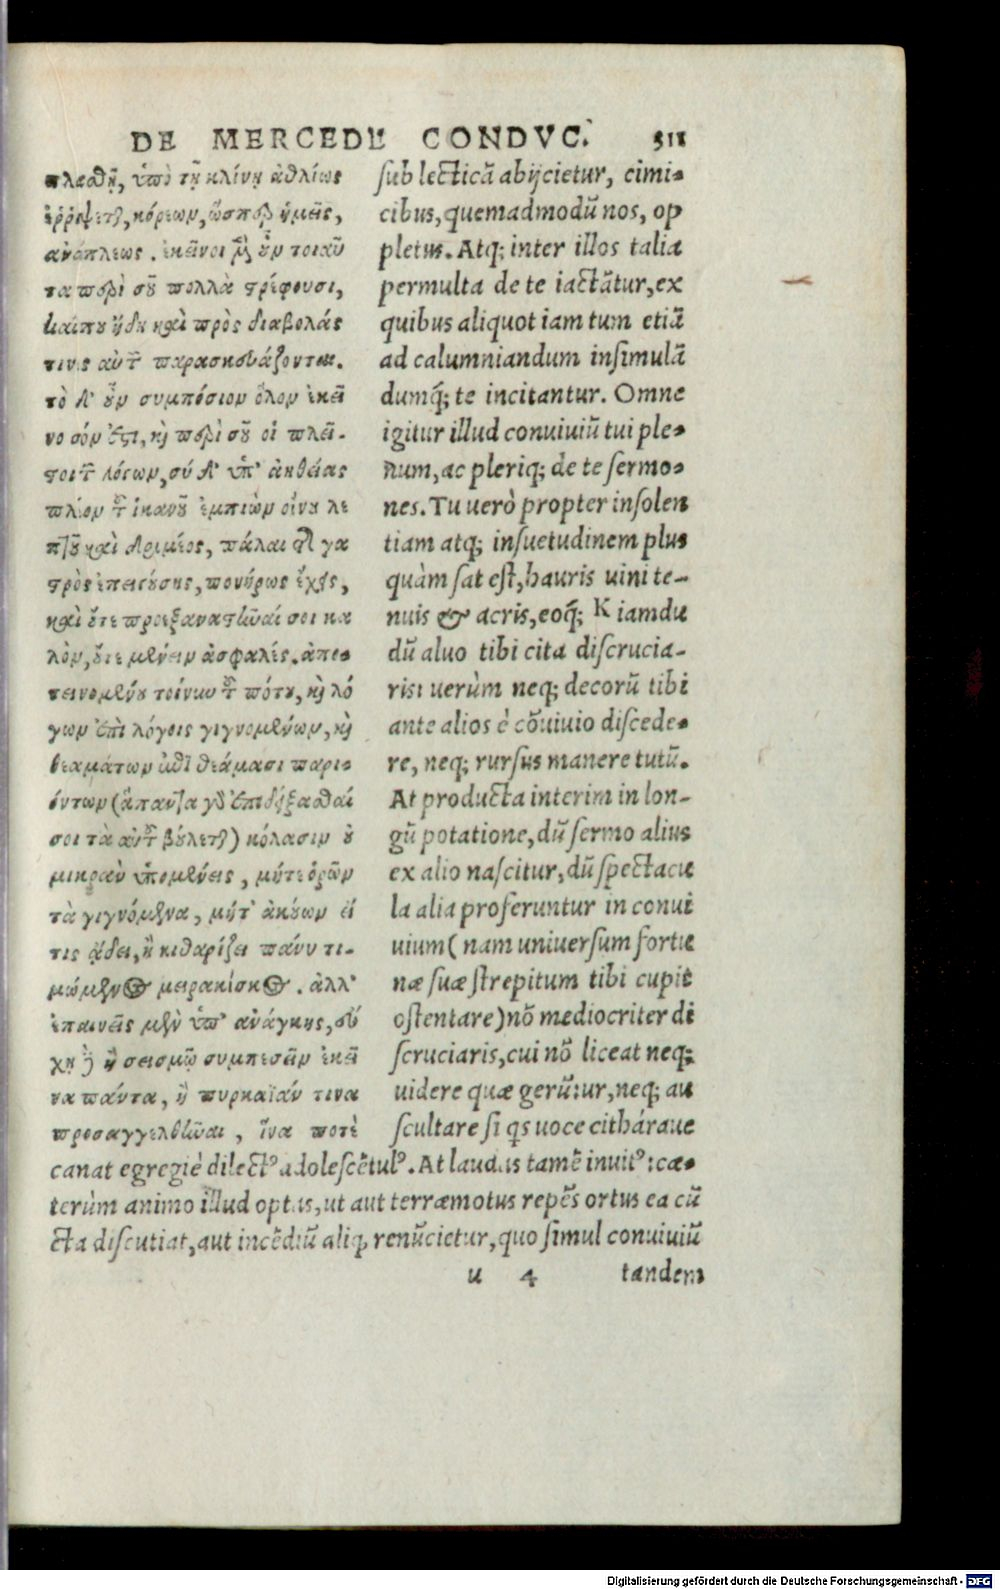 DE MERCEDE CONDVC. 311
πλασθῇ, ὑπὸ τῇ κλίνῃ ἀθλίως
ἐῤῥίψεται, κόρεων, ὥσπερ ἡμεῖς,
ἀνάπλεως. ἐκεῖνοι μὲν οὖν τοιαῦ
τα περὶ σοῦ πολλὰ στρέφουσι,
καί που ἤδη καὶ πρὸς διαβολάς
τινες αὐτῶν παρασκευάζονται.
τὸ δ' οὖν συμπόσιον ὅλον ἐκεῖ
νο σόν ἐστι, καὶ περὶ σοῦ οἱ πλεῖ-
στοι τῶν λόγων, σύ δ' ὑπ' ἀηθείας
πλέον τοῦ ἱκανοῦ ἐμπιὼν οἴνου λε
πτοῦ καὶ δριμέος, πάλαι τῆς γα
στρὸς ἐπειγούσης, πονήρως ἔχεις,
καὶ οὔτε προεξαναστῆναί σοι κα
λὸν, οὔτε μένειν ἀσφαλές. ἀπο-
τεινομένου τοίνυν τοῦ πότου, καὶ λό
γων ἐπὶ λόγοις γιγνομένων, καὶ
θεαμάτων ἐπὶ θεάμασι παρι-
όντων (ἅπαντα γὰρ ἐπιδείξασθαί
σοι τὰ αὑτοῦ βούλεται) κόλασιν οὐ
μικρὰν ὑπομένεις, μήτε ὁρῶν
τὰ γιγνόμενα, μήτ' ἀκούων εἴ
τις ᾄδει, ἢ κιθαρίζει πάνυ τι-
μώμενος μειρακίσκος. ἀλλ'
ἐπαινεῖς μὲν ὑπ' ἀνάγκης, εὔ
χῃ δὲ ἢ σεισμῷ συμπεσεῖν ἐκεῖ
να πάντα, ἢ πυρκαϊάν τινα
προσαγγελθῆναι, ἵνα ποτὲ
sub lecticā abijcietur, cimi-
cibus, quemadmodū nos, op
pletus. Atq; inter illos talia
permulta de te iactātur, ex
quibus aliquot iam tum etiā
ad calumniandum insimulā
dumq́; te incitantur. Omne
igitur illud conuiuiū tui ple-
num, ac pleriq; de te sermo-
nes. Tu uerò propter insolen
tiam atq; insuetudinem plus
quàm sat est, hauris uini te-
nuis & acris, eoq́; K iamdu
dū aluo tibi cita discrucia-
ris: uerùm neq; decorū tibi
ante alios è cōuiuio discede-
re, neq; rursus manere tutū.
At producta interim in lon-
gū potatione, dū sermo alius
ex alio nascitur, dū spectacu
la alia proferuntur in conui
uium (nam uniuersum fortu
næ suæ strepitum tibi cupit
ostentare) nō mediocriter di
scruciaris, cui nō liceat neq;
uidere quæ gerūtur, neq; au
scultare si qs uoce citharáue
canat egregiè dilectꝰ adolescētulꝰ. At laudas tamē inuitꝰ: cæ-
terùm animo illud optas, ut aut terræmotus repēs ortus ea cū
cta discutiat, aut incēdiū aliq renūcietur, quo simul conuiuiū
u 4 tandem
Digitalisierung gefördert durch die Deutsche Forschungsgemeinschaft - DFG